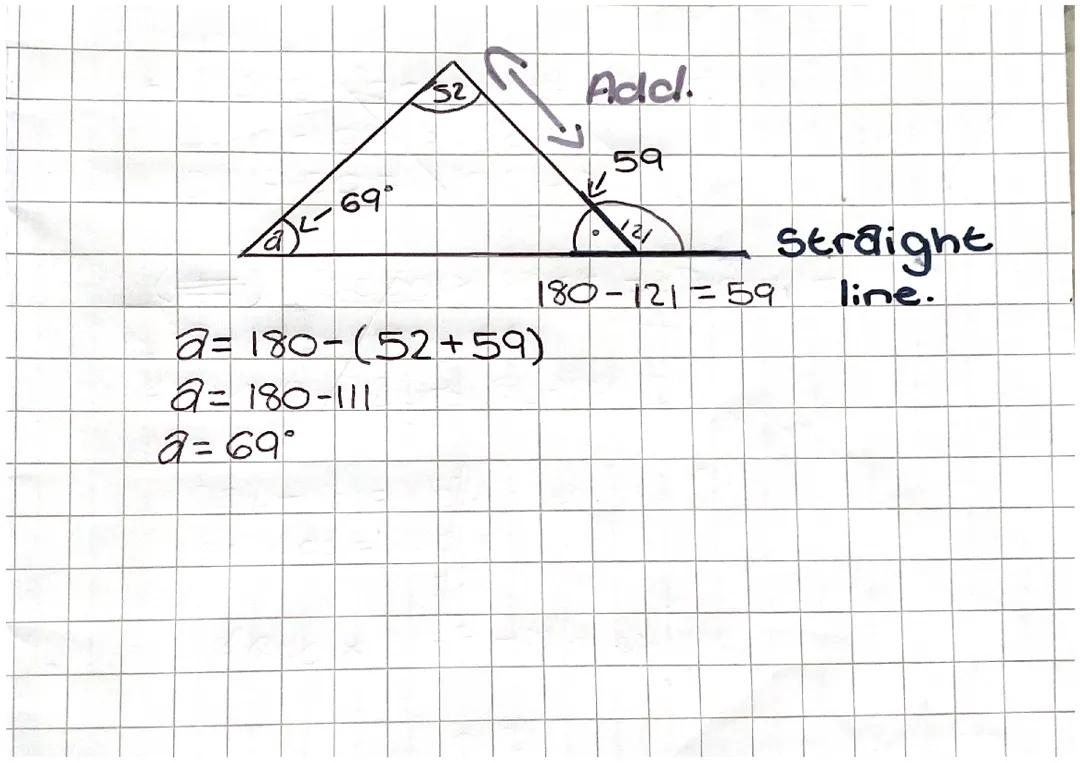 52
Add.
59
69°
a
121
straight
line.
180-121=59
a=180-(52+59)
a=180-111
a=69°